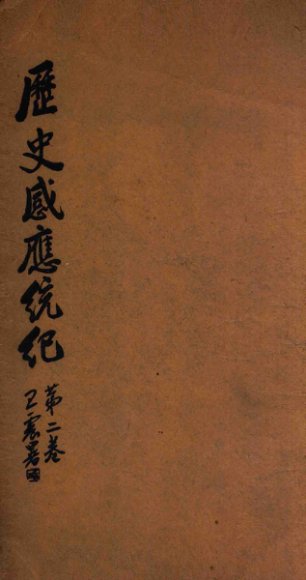 歷史感應統紀
第二卷
王震署